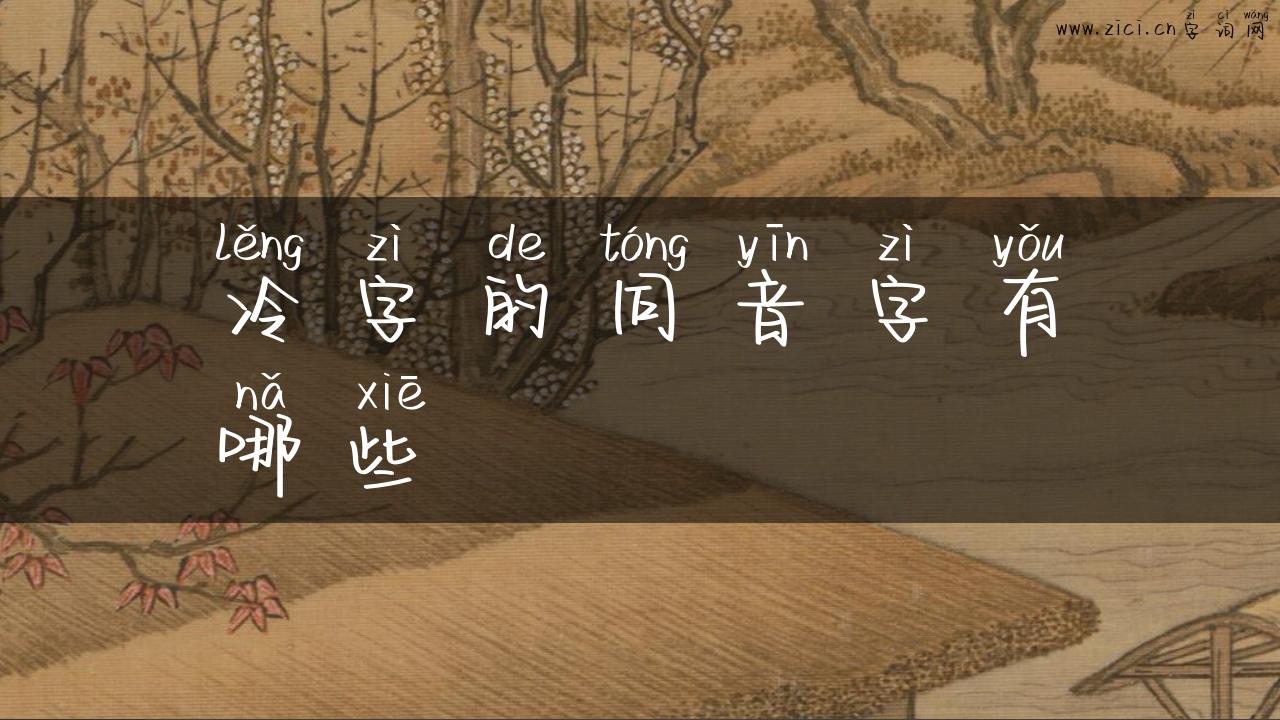 zì cí wǎng
www.zici.cn 字 词 网
lěng zì de tóng yīn zì yǒu
冷 字 的 同 音 字 有
nǎ xiē
哪 些